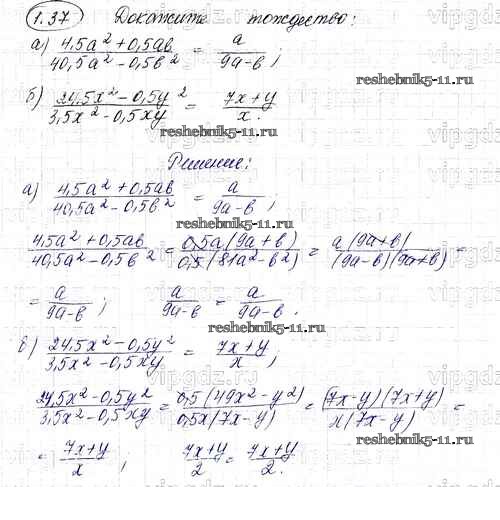 1.37 Докажите тождество:
а) (4,5a² + 0,5ab)/(40,5a² - 0,5b²) = a/(9a-b);
reshebnik5-11.ru
б) (24,5x² - 0,5y²)/(3,5x² - 0,5xy) = (7x+y)/x.
reshebnik5-11.ru
Решение:
а) (4,5a² + 0,5ab)/(40,5a² - 0,5b²) = a/(9a-b);
reshebnik5-11.ru
(4,5a² + 0,5ab)/(40,5a² - 0,5b²) = 0,5a(9a+b)/0,5(81a² - b²) = a(9a+b)/(9a-b)(9a+b) =
= a/(9a-b); a/(9a-b) = a/(9a-b).
reshebnik5-11.ru
б) (24,5x² - 0,5y²)/(3,5x² - 0,5xy) = (7x+y)/x;
reshebnik5-11.ru
(24,5x² - 0,5y²)/(3,5x² - 0,5xy) = 0,5(49x² - y²)/0,5x(7x-y) = (7x-y)(7x+y)/x(7x-y) =
reshebnik5-11.ru
= (7x+y)/x; (7x+y)/2 = (7x+y)/2.